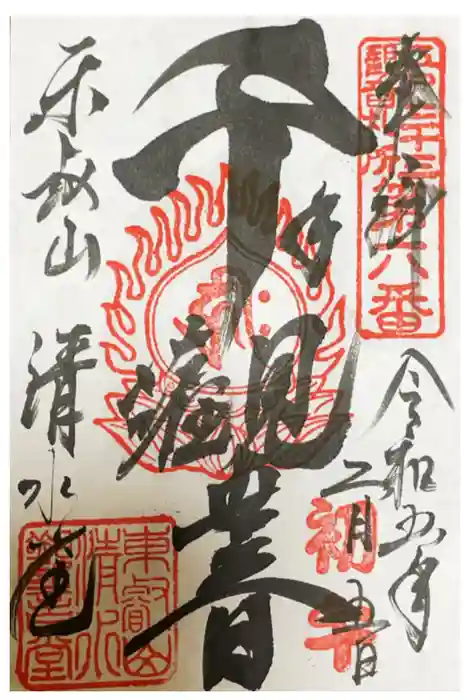 奉拝
江戸三十三
観音札所
第六番
令和五年
二月五日
初午
千手
観音
東叡山
清水堂
東叡山
清水
観音堂